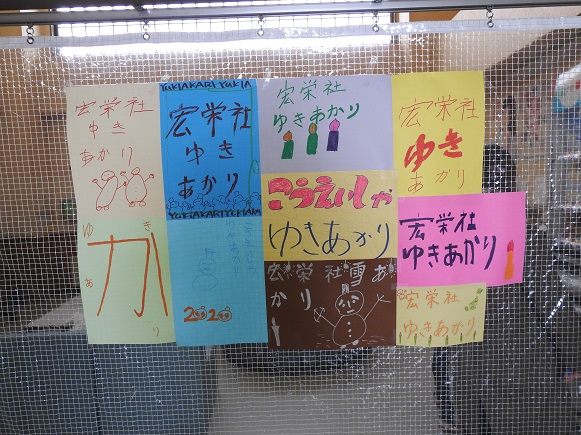 宏栄社
ゆき
あかり
YUKIAKARI YUKIA
宏栄社
ゆき
あかり
YUKIAKARIYUKIAKA
宏栄社
ゆきあかり
宏栄社
ゆき
あかり
ゆき
か
あ
り
こうえいしゃ
ゆきあかり
2020
こうえいしゃ
ゆきあかり
宏栄社雪あ
かり
宏栄社
ゆきあかり
宏栄社
ゆきあかり